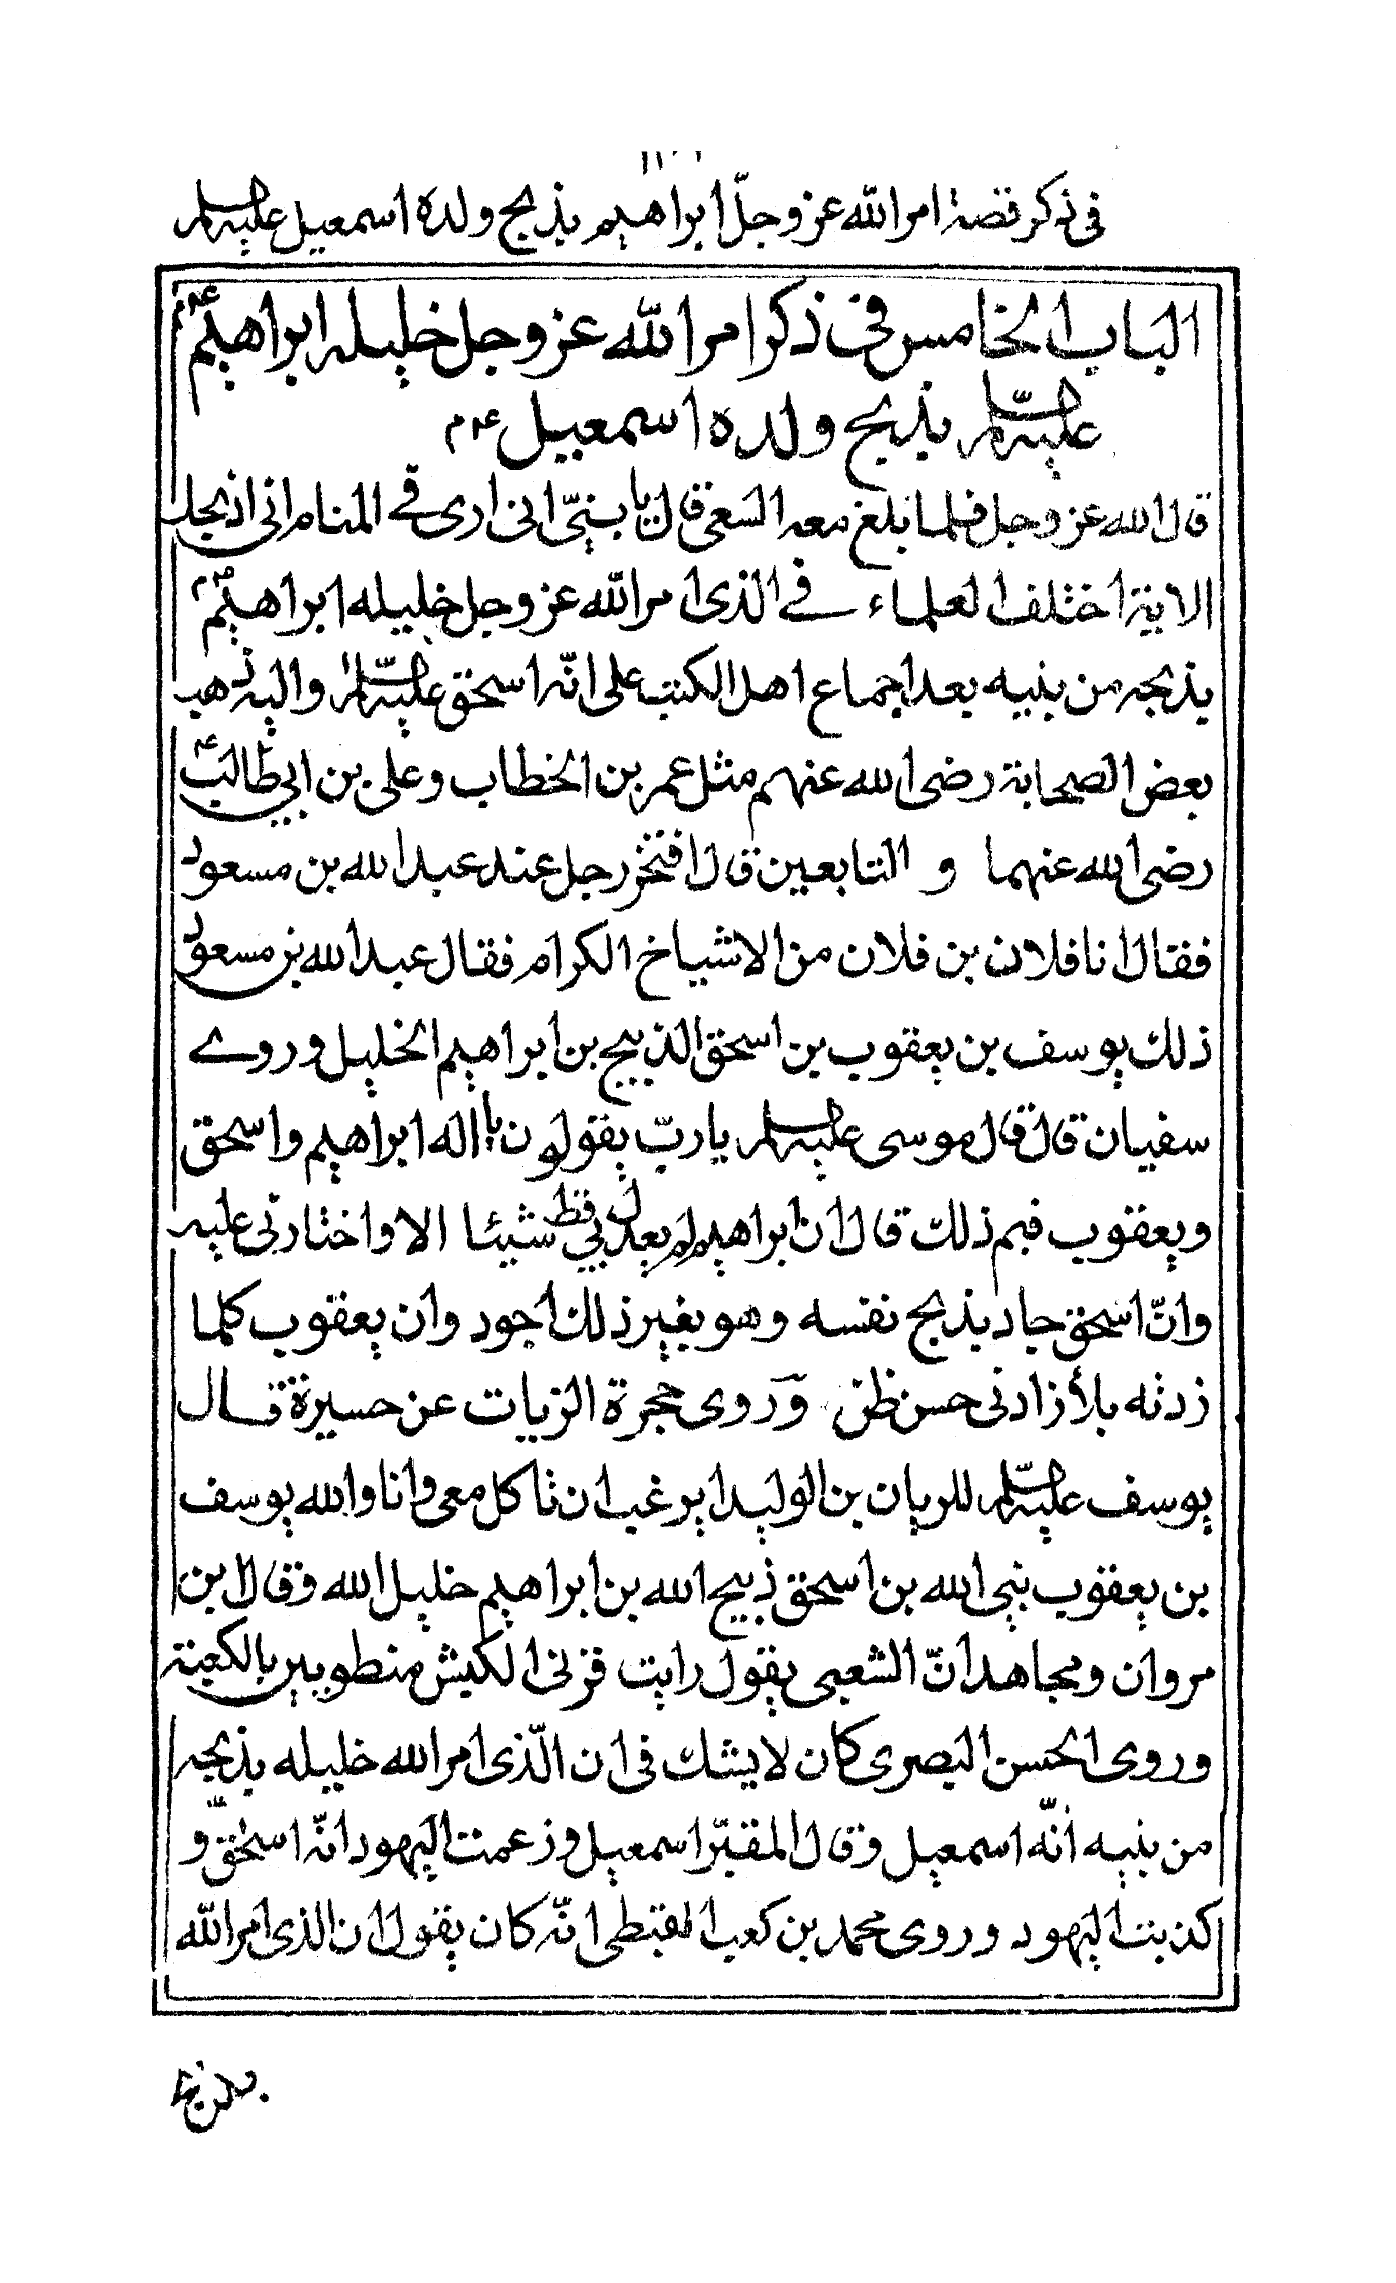 في ذكر قصة امر الله عز وجلّ ابراهيم بذبح ولده اسمعيل عليه السلام
الباب الخامس في ذكر امر الله عز وجل خليله ابراهيم
عليه السّلام بذبح ولده اسمعيل ع م
قال الله عز وجل فلما بلغ معه السعى قال يا بنيّ انى ارى في المنام انى اذبحك
الاية اختلف العلماء في الذى امر الله عز وجل خليله ابراهيم
بذبحه من بنيه بعد اجماع اهل الكتب على انّه اسحق عليه السّلام واليه ذهب
بعض الصحابة رضى الله عنهم مثل عمر بن الخطاب وعلى بن ابي طالب
رضى الله عنهما و التابعين قال افتخر رجل عند عبد الله بن مسعود
فقال انا فلان بن فلان من الاشياخ الكرام فقال عبد الله بن مسعود
ذلك يوسف بن يعقوب بن اسحق الذبيح بن ابراهيم الخليل وروے
سفيان قال قال موسى عليه السلام يا ربّ يقولون يا اله ابراهيم واسحق
ويعقوب فبم ذلك قال ان ابراهيم لم يعدل بي قط شيئا الا واختارنى عليه
وانّ اسحق جاد بذبح نفسه وهو بغير ذلك اجود وان يعقوب كلما
زدته بلأ زادنى حسن ظن وروى حجرة الزيات عن حسيرة قال
يوسف عليه السّلم للريان بن الوليد ايرغب ان تاكل معى وانا والله يوسف
بن يعقوب نبي الله بن اسحق ذبيح الله بن ابراهيم خليل الله وقال ابن
مروان ومجاهد انّ الشعبى يقول رايت قرنى الكبش منطوبين بالكعبة
وروى الحسن البصرى كان لا يشك في ان الّذى امر الله خليله بذبحه
من بنيه انّه اسمعيل وقال المقبّر اسمعيل وزعمت اليهود انّه اسحق و
كذبت اليهود وروى محمد بن كعب القبطى انّه كان يقول ان الذى امر الله